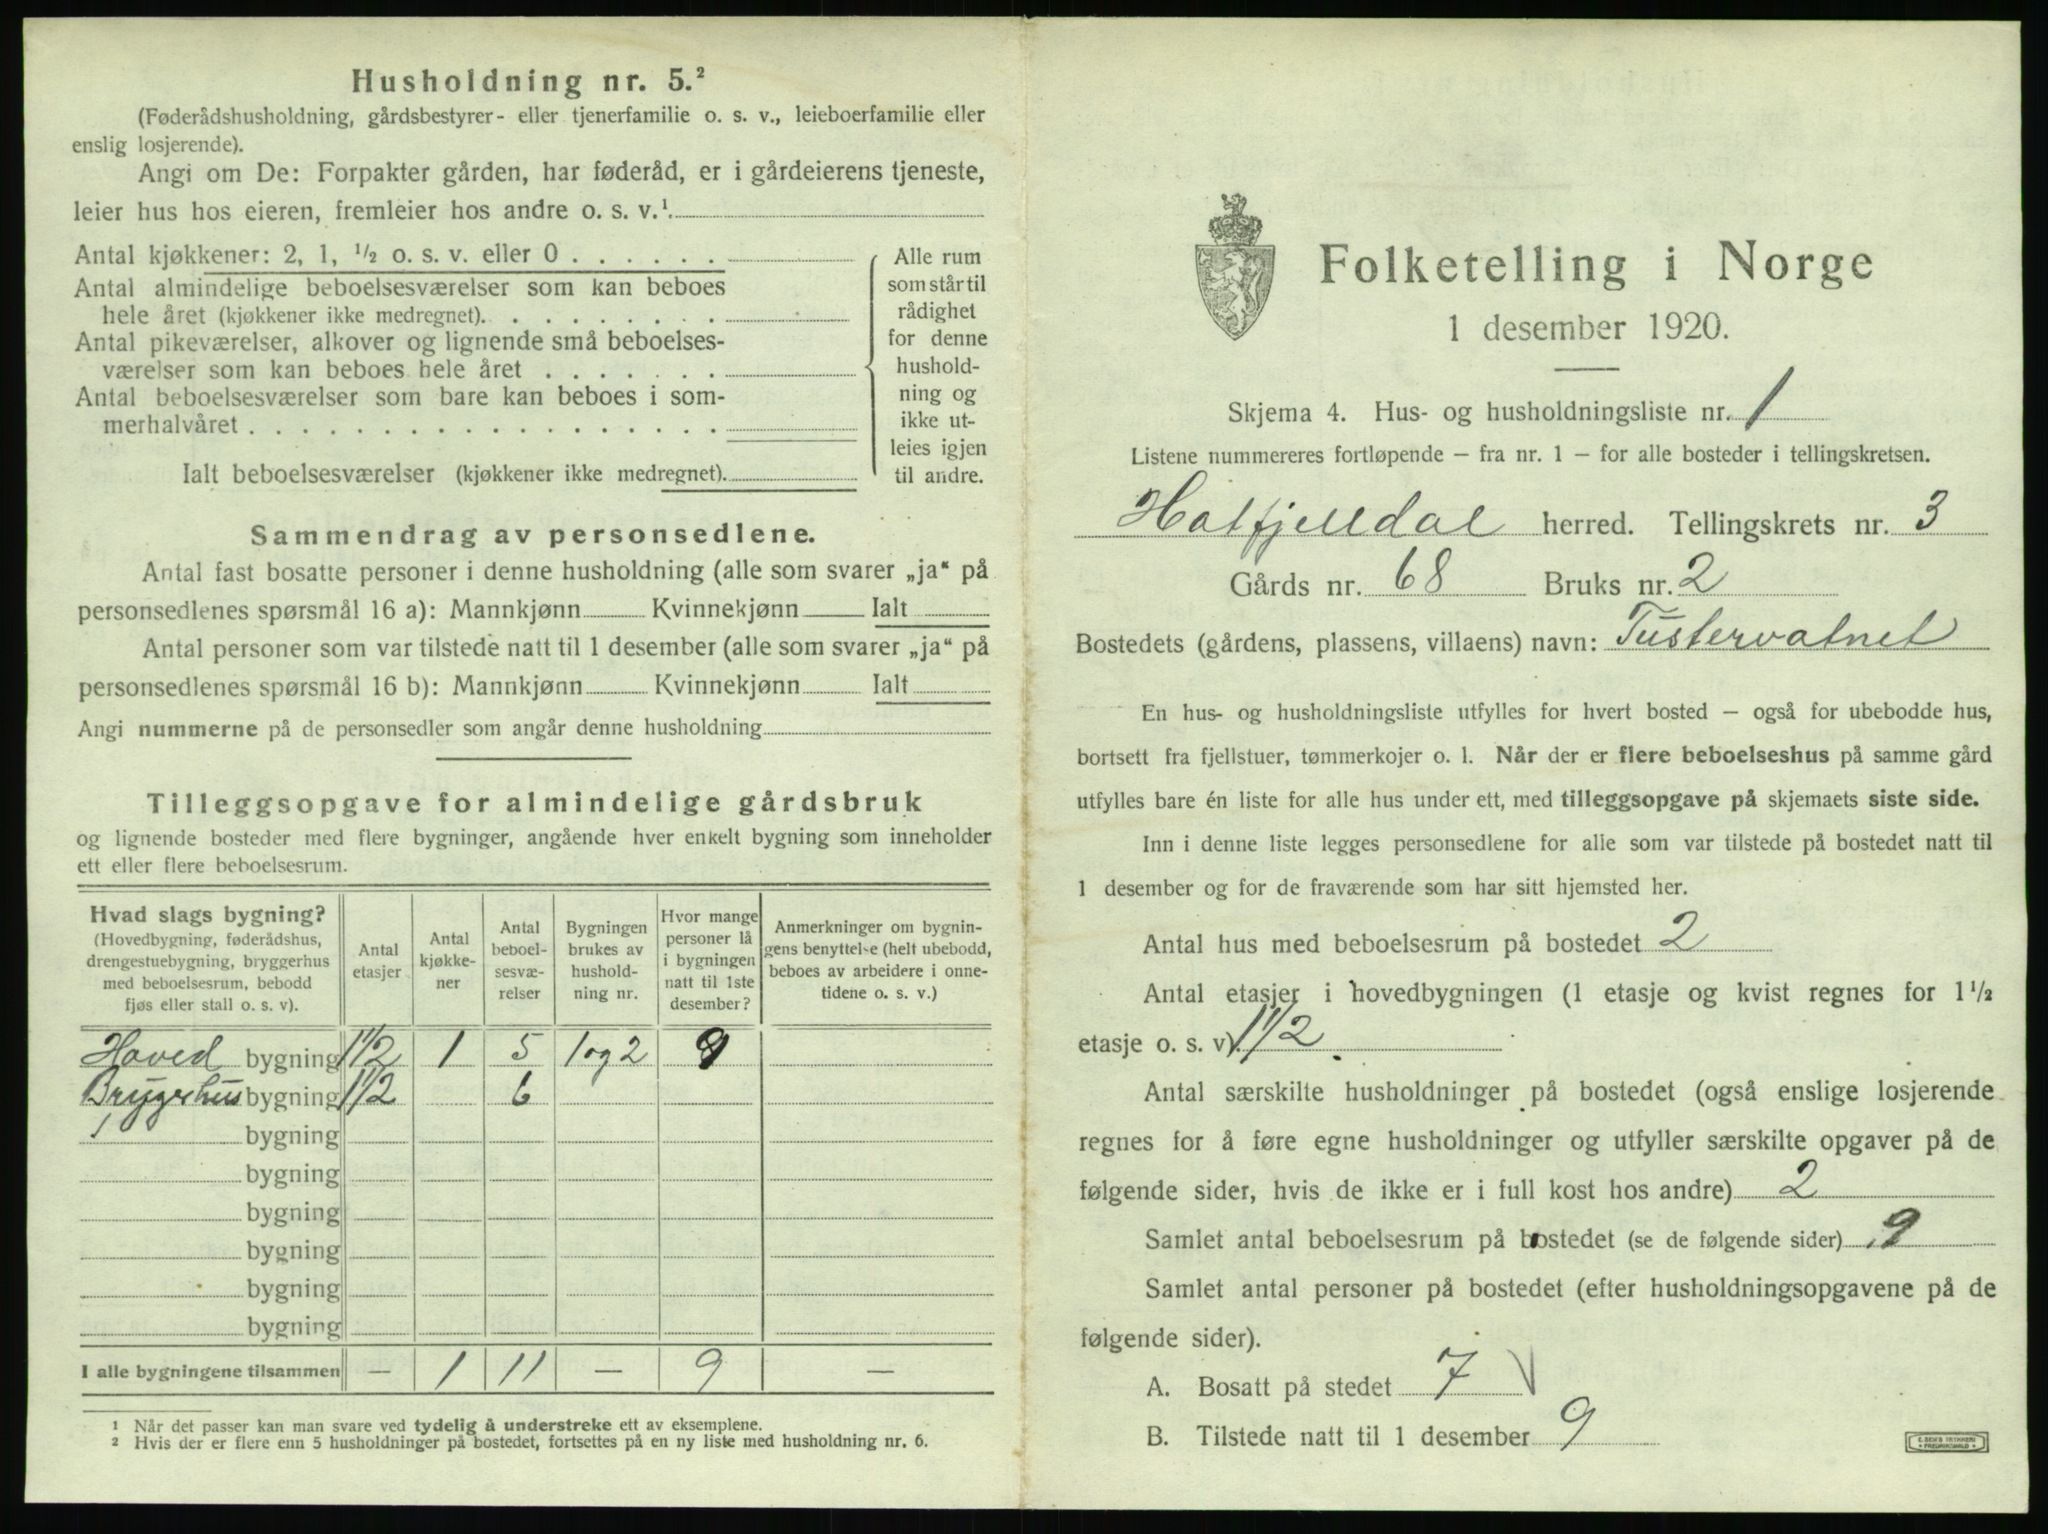 Husholdning nr. 5.²
(Føderådshusholdning, gårdsbestyrer- eller tjenerfamilie o. s. v., leieboerfamilie eller
enslig losjerende).
Angi om De: Forpakter gården, har føderåd, er i gårdeierens tjeneste,
leier hus hos eieren, fremleier hos andre o. s. v.¹
Antal kjøkkener: 2, 1, ½ o. s. v. eller 0 . . . . . .
Antal almindelige beboelsesværelser som kan beboes
hele året (kjøkkener ikke medregnet). . . . . . . . .
Antal pikeværelser, alkover og lignende små beboelses-
værelser som kan beboes hele året . . . . . . .
Antal beboelsesværelser som bare kan beboes i som-
merhalvåret . . . . . . . . . . . . . . . . . .
Ialt beboelsesværelser (kjøkkener ikke medregnet).
Alle rum
som står til
rådighet
for denne
hushold-
ning og
ikke ut-
leies igjen
til andre.
Sammendrag av personsedlene.
Antal fast bosatte personer i denne husholdning (alle som svarer „ja“ på
personsedlenes spørsmål 16 a): Mannkjønn Kvinnekjønn Ialt
Antal personer som var tilstede natt til 1 desember (alle som svarer „ja“ på
personsedlenes spørsmål 16 b): Mannkjønn Kvinnekjønn Ialt
Angi nummerne på de personsedler som angår denne husholdning
Tilleggsopgave for almindelige gårdsbruk
og lignende bosteder med flere bygninger, angående hver enkelt bygning som inneholder
ett eller flere beboelsesrum.
Hvad slags bygning?
(Hovedbygning, føderådshus,
drengestuebygning, bryggerhus
med beboelsesrum, bebodd
fjøs eller stall o. s. v).
Antal
etasjer
Antal
kjøkke-
ner
Antal
beboel-
sesvæ-
relser
Bygningen
brukes av
hushold-
ning nr.
Hvor mange
personer lå
i bygningen
natt til 1ste
desember?
Anmerkninger om bygnin-
gens benyttelse (helt ubebodd,
beboes av arbeidere i onne-
tidene o. s. v.)
Hoved bygning 1½ 1 5 1 og 2 9
Brygerhus bygning 1½ 6
bygning
bygning
bygning
bygning
bygning
bygning
I alle bygningene tilsammen — 1 11 — 9 —
¹ Når det passer kan man svare ved tydelig å understreke ett av eksemplene.
² Hvis der er flere enn 5 husholdninger på bostedet, fortsettes på en ny liste med husholdning nr. 6.
Folketelling i Norge
1 desember 1920.
Skjema 4. Hus- og husholdningsliste nr. 1
Listene nummereres fortløpende – fra nr. 1 – for alle bosteder i tellingskretsen.
Hatfjelldal herred. Tellingskrets nr. 3
Gårds nr. 68 Bruks nr. 2
Bostedets (gårdens, plassens, villaens) navn: Tustervatnet
En hus- og husholdningsliste utfylles for hvert bosted – også for ubebodde hus,
bortsett fra fjellstuer, tømmerkojer o. l. Når der er flere beboelseshus på samme gård
utfylles bare én liste for alle hus under ett, med tilleggsopgave på skjemaets siste side.
Inn i denne liste legges personsedlene for alle som var tilstede på bostedet natt til
1 desember og for de fraværende som har sitt hjemsted her.
Antal hus med beboelsesrum på bostedet 2
Antal etasjer i hovedbygningen (1 etasje og kvist regnes for 1½
etasje o. s. v). 1½
Antal særskilte husholdninger på bostedet (også enslige losjerende
regnes for å føre egne husholdninger og utfyller særskilte opgaver på de
følgende sider, hvis de ikke er i full kost hos andre) 2
Samlet antal beboelsesrum på bostedet (se de følgende sider) 9
Samlet antal personer på bostedet (efter husholdningsopgavene på de
følgende sider).
A. Bosatt på stedet 7
B. Tilstede natt til 1 desember 9